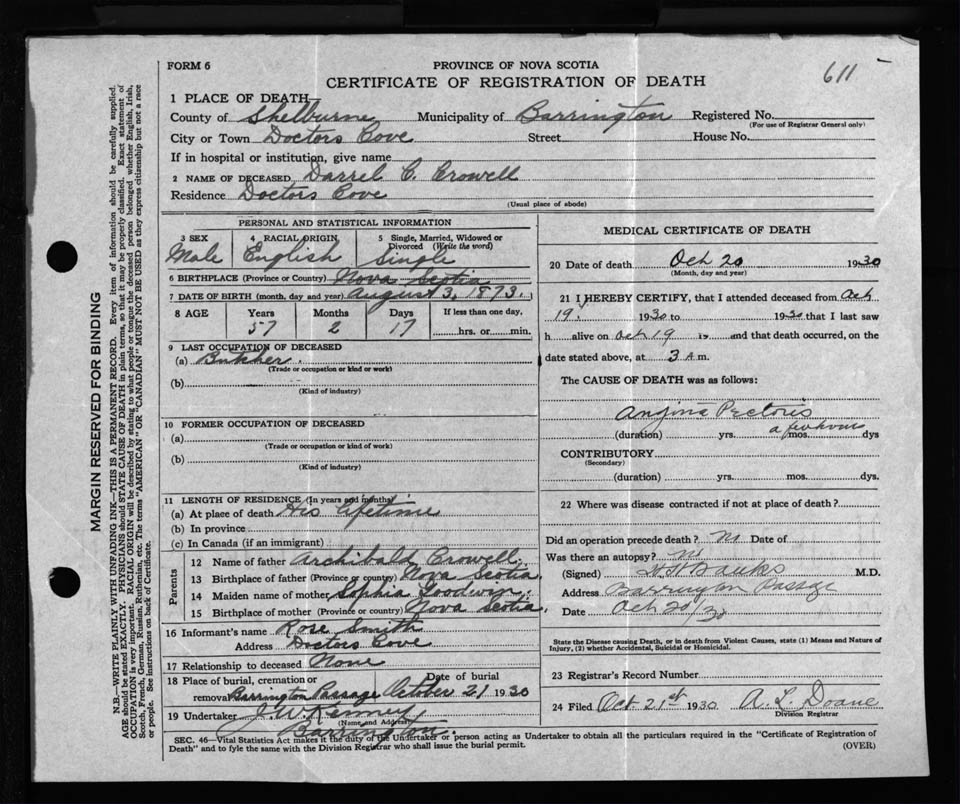 FORM 6
PROVINCE OF NOVA SCOTIA
CERTIFICATE OF REGISTRATION OF DEATH
611
1 PLACE OF DEATH
County of Shelburne Municipality of Barrington Registered No.
(For use of Registrar General only)
City or Town Doctors Cove Street House No.
If in hospital or institution, give name
2 NAME OF DECEASED Darrel C. Crowell
Residence Doctors Cove
(Usual place of abode)
PERSONAL AND STATISTICAL INFORMATION
3 SEX 4 RACIAL ORIGIN 5 Single, Married, Widowed or
Divorced (Write the word)
Male English Single
6 BIRTHPLACE (Province or Country) Nova Scotia
7 DATE OF BIRTH (month, day and year) August 3, 1873.
8 AGE Years Months Days If less than one day,
57 2 17 hrs. or min.
9 LAST OCCUPATION OF DECEASED
(a) Butcher.
(Trade or occupation or kind or work)
(b)
(Kind of industry)
10 FORMER OCCUPATION OF DECEASED
(a)
(Trade or occupation or kind of work)
(b)
(Kind of industry)
11 LENGTH OF RESIDENCE (In years and months)
(a) At place of death His lifetime
(b) In province
(c) In Canada (if an immigrant)
Parents
12 Name of father Archibald Crowell.
13 Birthplace of father (Province or country) Nova Scotia.
14 Maiden name of mother Sophia Goodwin.
15 Birthplace of mother (Province or country) Nova Scotia.
16 Informant's name Rose Smith
Address Doctors Cove
17 Relationship to deceased None
18 Place of burial, cremation or Date of burial
removal Barrington Passage October 21 1930
19 Undertaker J. W. Kenney
(Name and Address)
Barrington.
MEDICAL CERTIFICATE OF DEATH
20 Date of death Oct 20 1930
(Month, day and year)
21 I HEREBY CERTIFY, that I attended deceased from Oct
19. 1930 to 1930 that I last saw
h alive on Oct 19 19 and that death occurred, on the
date stated above, at 3 A m.
The CAUSE OF DEATH was as follows:
Angina Pectoris
a few hours
(duration) yrs. mos. dys
CONTRIBUTORY
(Secondary)
(duration) yrs. mos. dys.
22 Where was disease contracted if not at place of death?
Did an operation precede death? No Date of
Was there an autopsy? No
(Signed) Banks M.D.
Address Barrington Passage
Date Oct 20/30
State the Disease causing Death, or in death from Violent Causes, state (1) Means and Nature of
Injury, (2) whether Accidental, Suicidal or Homicidal.
23 Registrar's Record Number
24 Filed Oct 21st 1930 A. L. Doane
Division Registrar
SEC. 46—Vital Statistics Act makes it the duty of the Undertaker or person acting as Undertaker to obtain all the particulars required in the "Certificate of Registration of
Death" and to fyle the same with the Division Registrar who shall issue the burial permit.
(OVER)
MARGIN RESERVED FOR BINDING
N.B.—WRITE PLAINLY WITH UNFADING INK—THIS IS A PERMANENT RECORD. Every item of information should be carefully supplied.
AGE should be stated EXACTLY. PHYSICIANS should STATE CAUSE OF DEATH in plain terms, so that it may be properly classified. Exact statement of
OCCUPATION is very important. RACIAL ORIGIN will be described by stating to what people or tongue the deceased person belonged whether English, Irish,
Scotch, French, German, Russian, Ruthenian, etc. The terms "AMERICAN" OR "CANADIAN" MUST NOT BE USED as they express citizenship but not a race
or people. See instructions on back of Certificate.